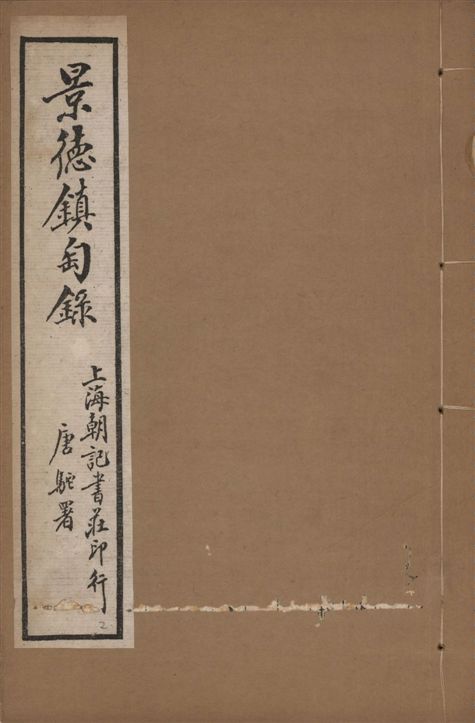 景德鎮匋錄
上海朝記書莊印行
唐駝署
2